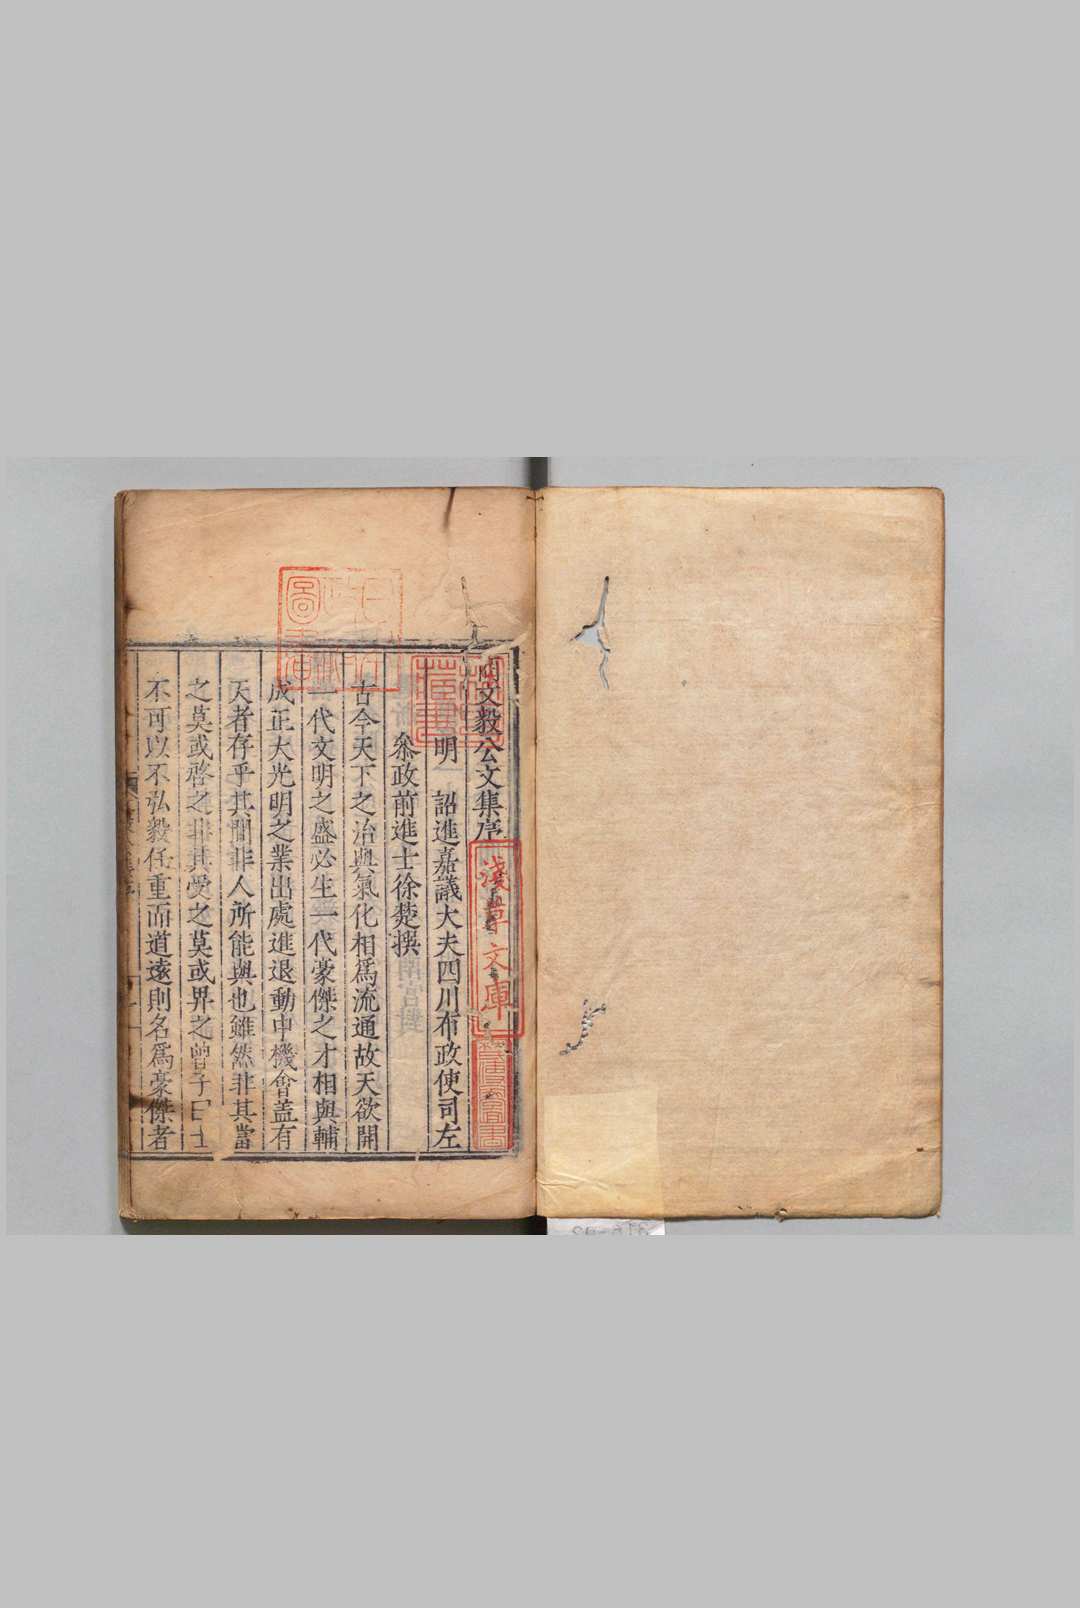 商文毅公文集序
明　詔進嘉議大夫四川布政使司左
叅政前進士徐楚撰
古今天下之治與氣化相爲流通故天欲開
一代文明之盛必生一代豪傑之才相與輔
成正大光明之業出處進退動中機會盖有
天者存乎其間非人所能與也雖然非其當
之莫或啓之非其受之莫或畀之曾子曰士
不可以不弘毅任重而道遠則名爲豪傑者
淺草文庫
圖書